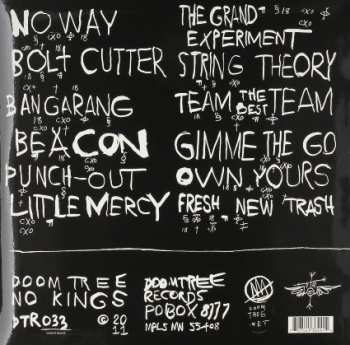 NO WAY
BOLT CUTTER
BANGARANG
BEACON
PUNCH-OUT
LITTLE MERCY
THE GRAND
EXPERIMENT
STRING THEORY
TEAM THE BEST TEAM
GIMME THE GO
OWN YOURS
FRESH NEW TRASH
DOOMTREE
NO KINGS
DTR033
© 2011
DOOMTREE
RECORDS
POBOX 8717
MPLS MN 55408
DOOM
TREE
.NET